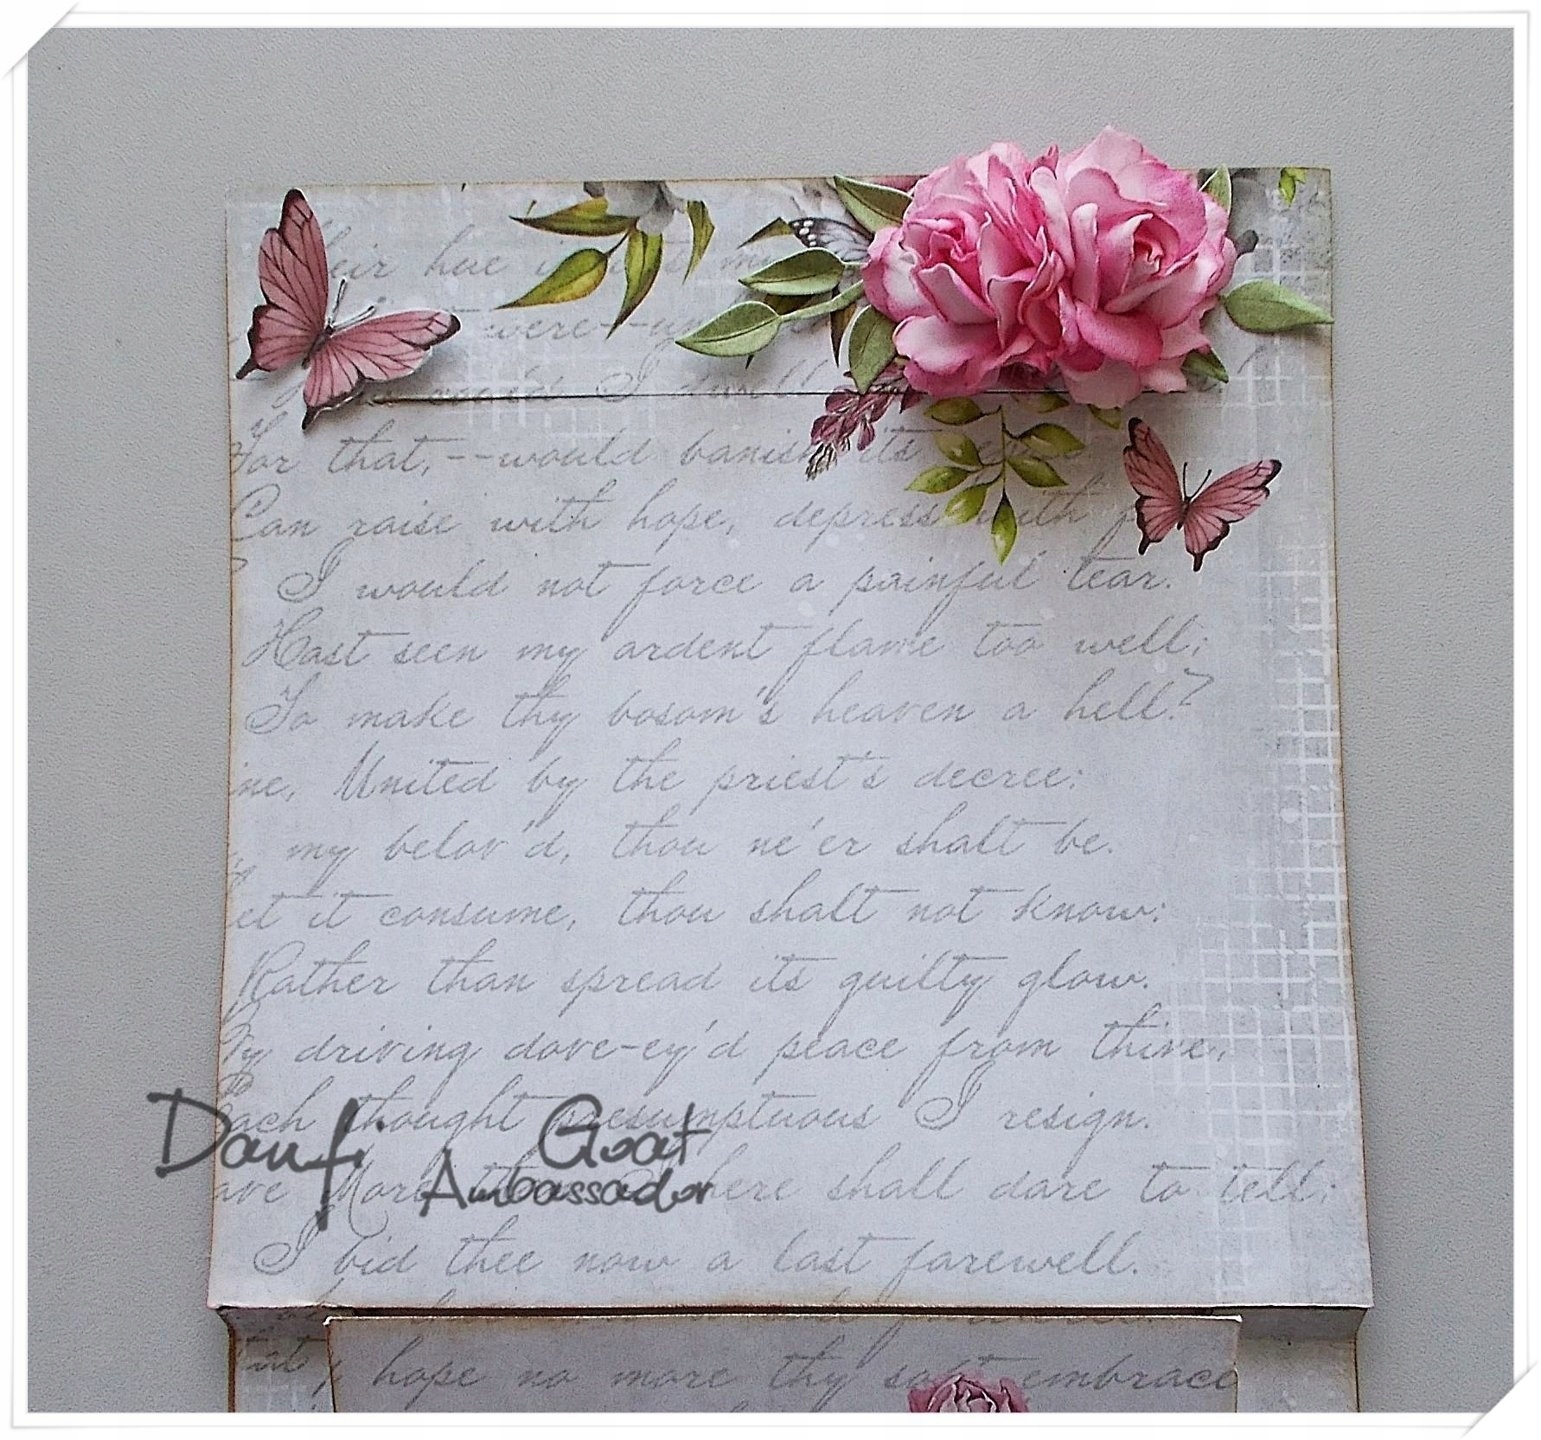 hue
were--
I dwell
For that,--would banish its
Can raise with hope, depress with
I would not force a painful tear.
Hast seen my ardent flame too well;
To make thy bosom's heaven a hell?
ne, United by the priest's decree:
my belov'd, thou ne'er shalt be.
et it consume, thou shalt not know:
Rather than spread its guilty glow.
By driving dove-ey'd peace from thine,
Each thought presumptuous I resign.
ave More than here shall dare to tell;
I bid thee now a last farewell.
hope no more thy soft embrace
Danfi Goat
Ambassador